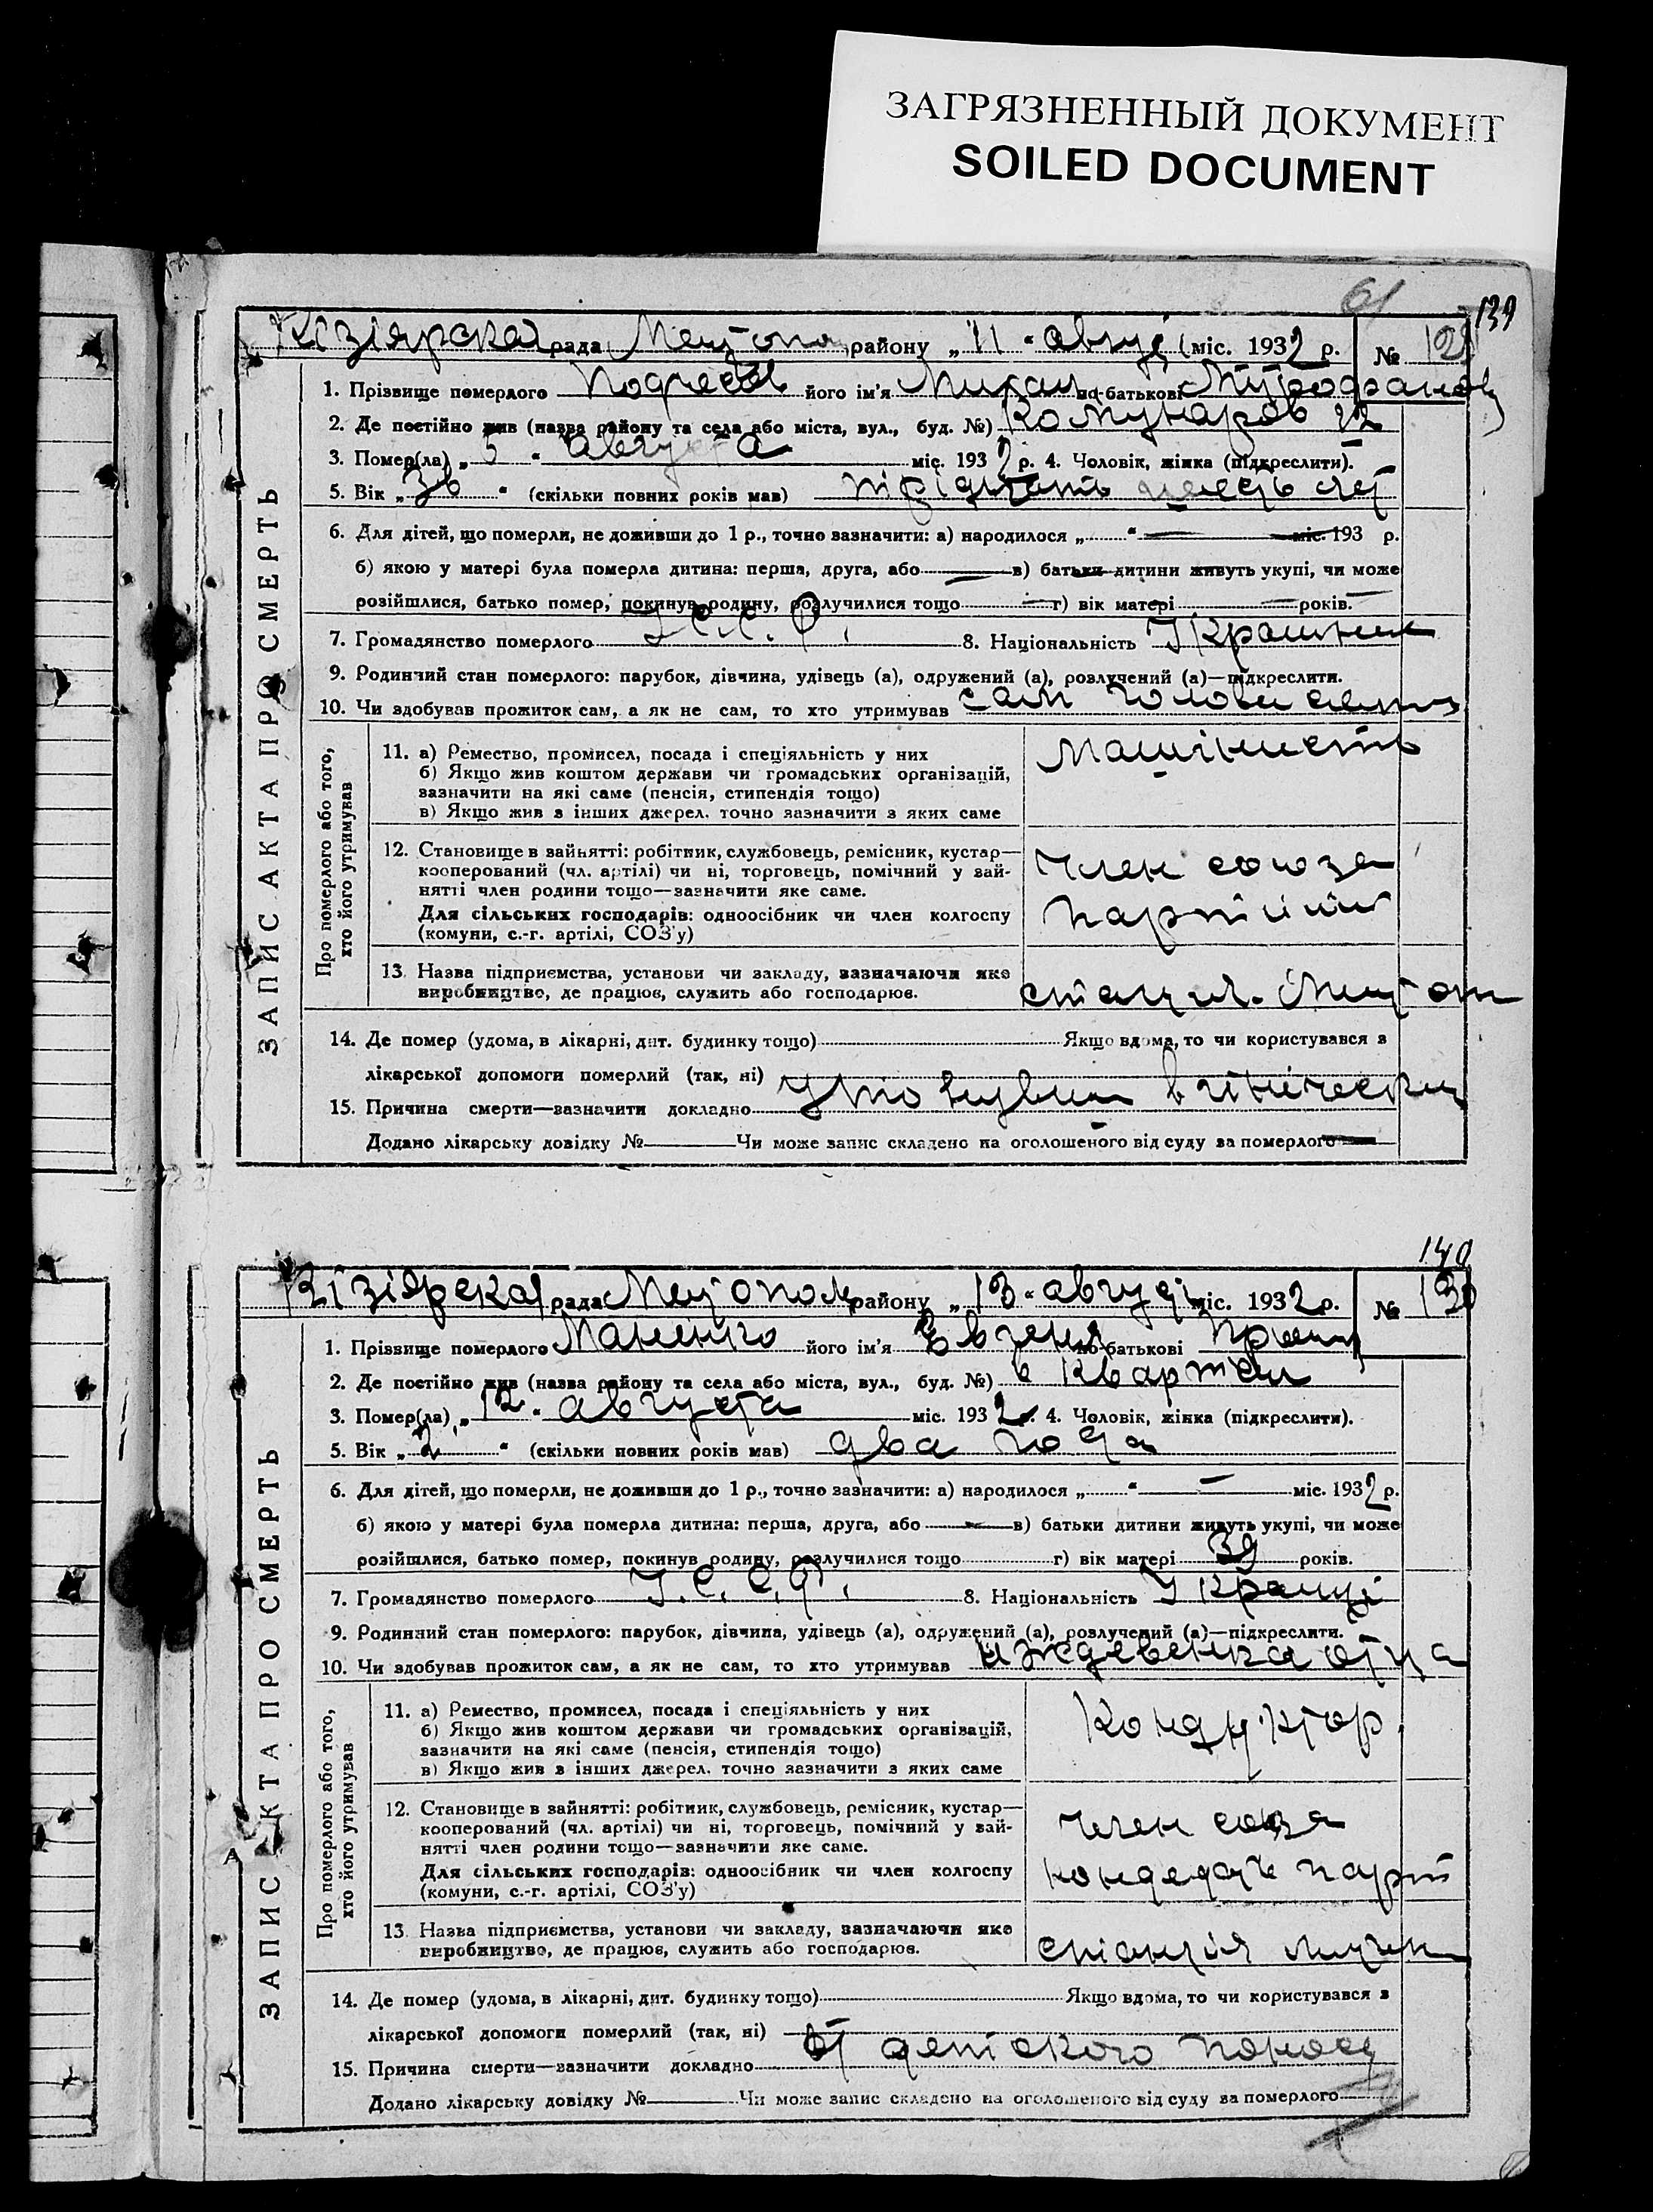 ЗАГРЯЗНЕННЫЙ ДОКУМЕНТ
SOILED DOCUMENT
61
139
Кізіярская рада Меліtопол району „11“ август міс. 1932 р. № 129
1. Прізвище померлого його ім'я по-батькові
2. Де постійно жив (назва району та села або міста, вул., буд. №) Комунаров 22
3. Помер(ла) „5“ августа міс. 1932 р. 4. Чоловік, жінка (підкреслити).
5. Вік „36“ (скільки повних років мав) трідцать шесть лет
6. Для дітей, що померли, не доживши до 1 р., точно зазначити: а) народилося „ “ міс. 193 р.
б) якою у матері була померла дитина: перша, друга, або в) батьки дитини живуть укупі, чи може
розійшлися, батько помер, покинув родину, розлучилися тощо г) вік матері років.
7. Громадянство померлого У.С.С.Р. 8. Національність
9. Родинний стан померлого: парубок, дівчина, удівець (а), одружений (а), розлучений (а)—підкреслити.
10. Чи здобував прожиток сам, а як не сам, то хто утримував сам
ЗАПИС АКТА ПРО СМЕРТЬ
Про померлого або того,
хто його утримував
11. а) Ремество, промисел, посада і спеціяльність у них
б) Якщо жив коштом держави чи громадських організацій,
зазначити на які саме (пенсія, стипендія тощо)
в) Якщо жив з інших джерел. точно зазначити з яких саме
Машіність
12. Становище в зайнятті: робітник, службовець, ремісник, кустар—
кооперований (чл. артілі) чи ні, торговець, помічний у зай-
нятті член родини тощо—зазначити яке саме.
Для сільських господарів: одноосібник чи член колгоспу
(комуни, с.-г. артілі, СОЗ'у)
член союза
13. Назва підприємства, установи чи закладу, зазначаючи яке
виробництво, де працює, служить або господарює.
14. Де помер (удома, в лікарні, дит. будинку тощо) Якщо вдома, то чи користувався з
лікарської допомоги померлий (так, ні)
15. Причина смерти—зазначити докладно
Додано лікарську довідку № Чи може запис складено на оголошеного від суду за померлого
140
Кізіярская рада Меліtопол району „13“ август міс. 1932 р. № 130
1. Прізвище померлого його ім'я Евгения по-батькові
2. Де постійно жив (назва району та села або міста, вул., буд. №)
3. Помер(ла) „12“ августа міс. 1932 р. 4. Чоловік, жінка (підкреслити).
5. Вік „2“ (скільки повних років мав) два года
6. Для дітей, що померли, не доживши до 1 р., точно зазначити: а) народилося „ “ міс. 1932 р.
б) якою у матері була померла дитина: перша, друга, або в) батьки дитини живуть укупі, чи може
розійшлися, батько помер, покинув родину, розлучилися тощо г) вік матері 39 років.
7. Громадянство померлого У.С.С.Р. 8. Національність
9. Родинний стан померлого: парубок, дівчина, удівець (а), одружений (а), розлучений (а)—підкреслити.
10. Чи здобував прожиток сам, а як не сам, то хто утримував иждевенка отца
ЗАПИС АКТА ПРО СМЕРТЬ
Про померлого або того,
хто його утримував
11. а) Ремество, промисел, посада і спеціяльність у них
б) Якщо жив коштом держави чи громадських організацій,
зазначити на які саме (пенсія, стипендія тощо)
в) Якщо жив з інших джерел. точно зазначити з яких саме
Кондуктор
12. Становище в зайнятті: робітник, службовець, ремісник, кустар—
кооперований (чл. артілі) чи ні, торговець, помічний у зай-
нятті член родини тощо—зазначити яке саме.
Для сільських господарів: одноосібник чи член колгоспу
(комуни, с.-г. артілі, СОЗ'у)
член союза
13. Назва підприємства, установи чи закладу, зазначаючи яке
виробництво, де працює, служить або господарює.
станция
14. Де помер (удома, в лікарні, дит. будинку тощо) Якщо вдома, то чи користувався з
лікарської допомоги померлий (так, ні)
15. Причина смерти—зазначити докладно от детского поносу
Додано лікарську довідку № Чи може запис складено на оголошеного від суду за померлого